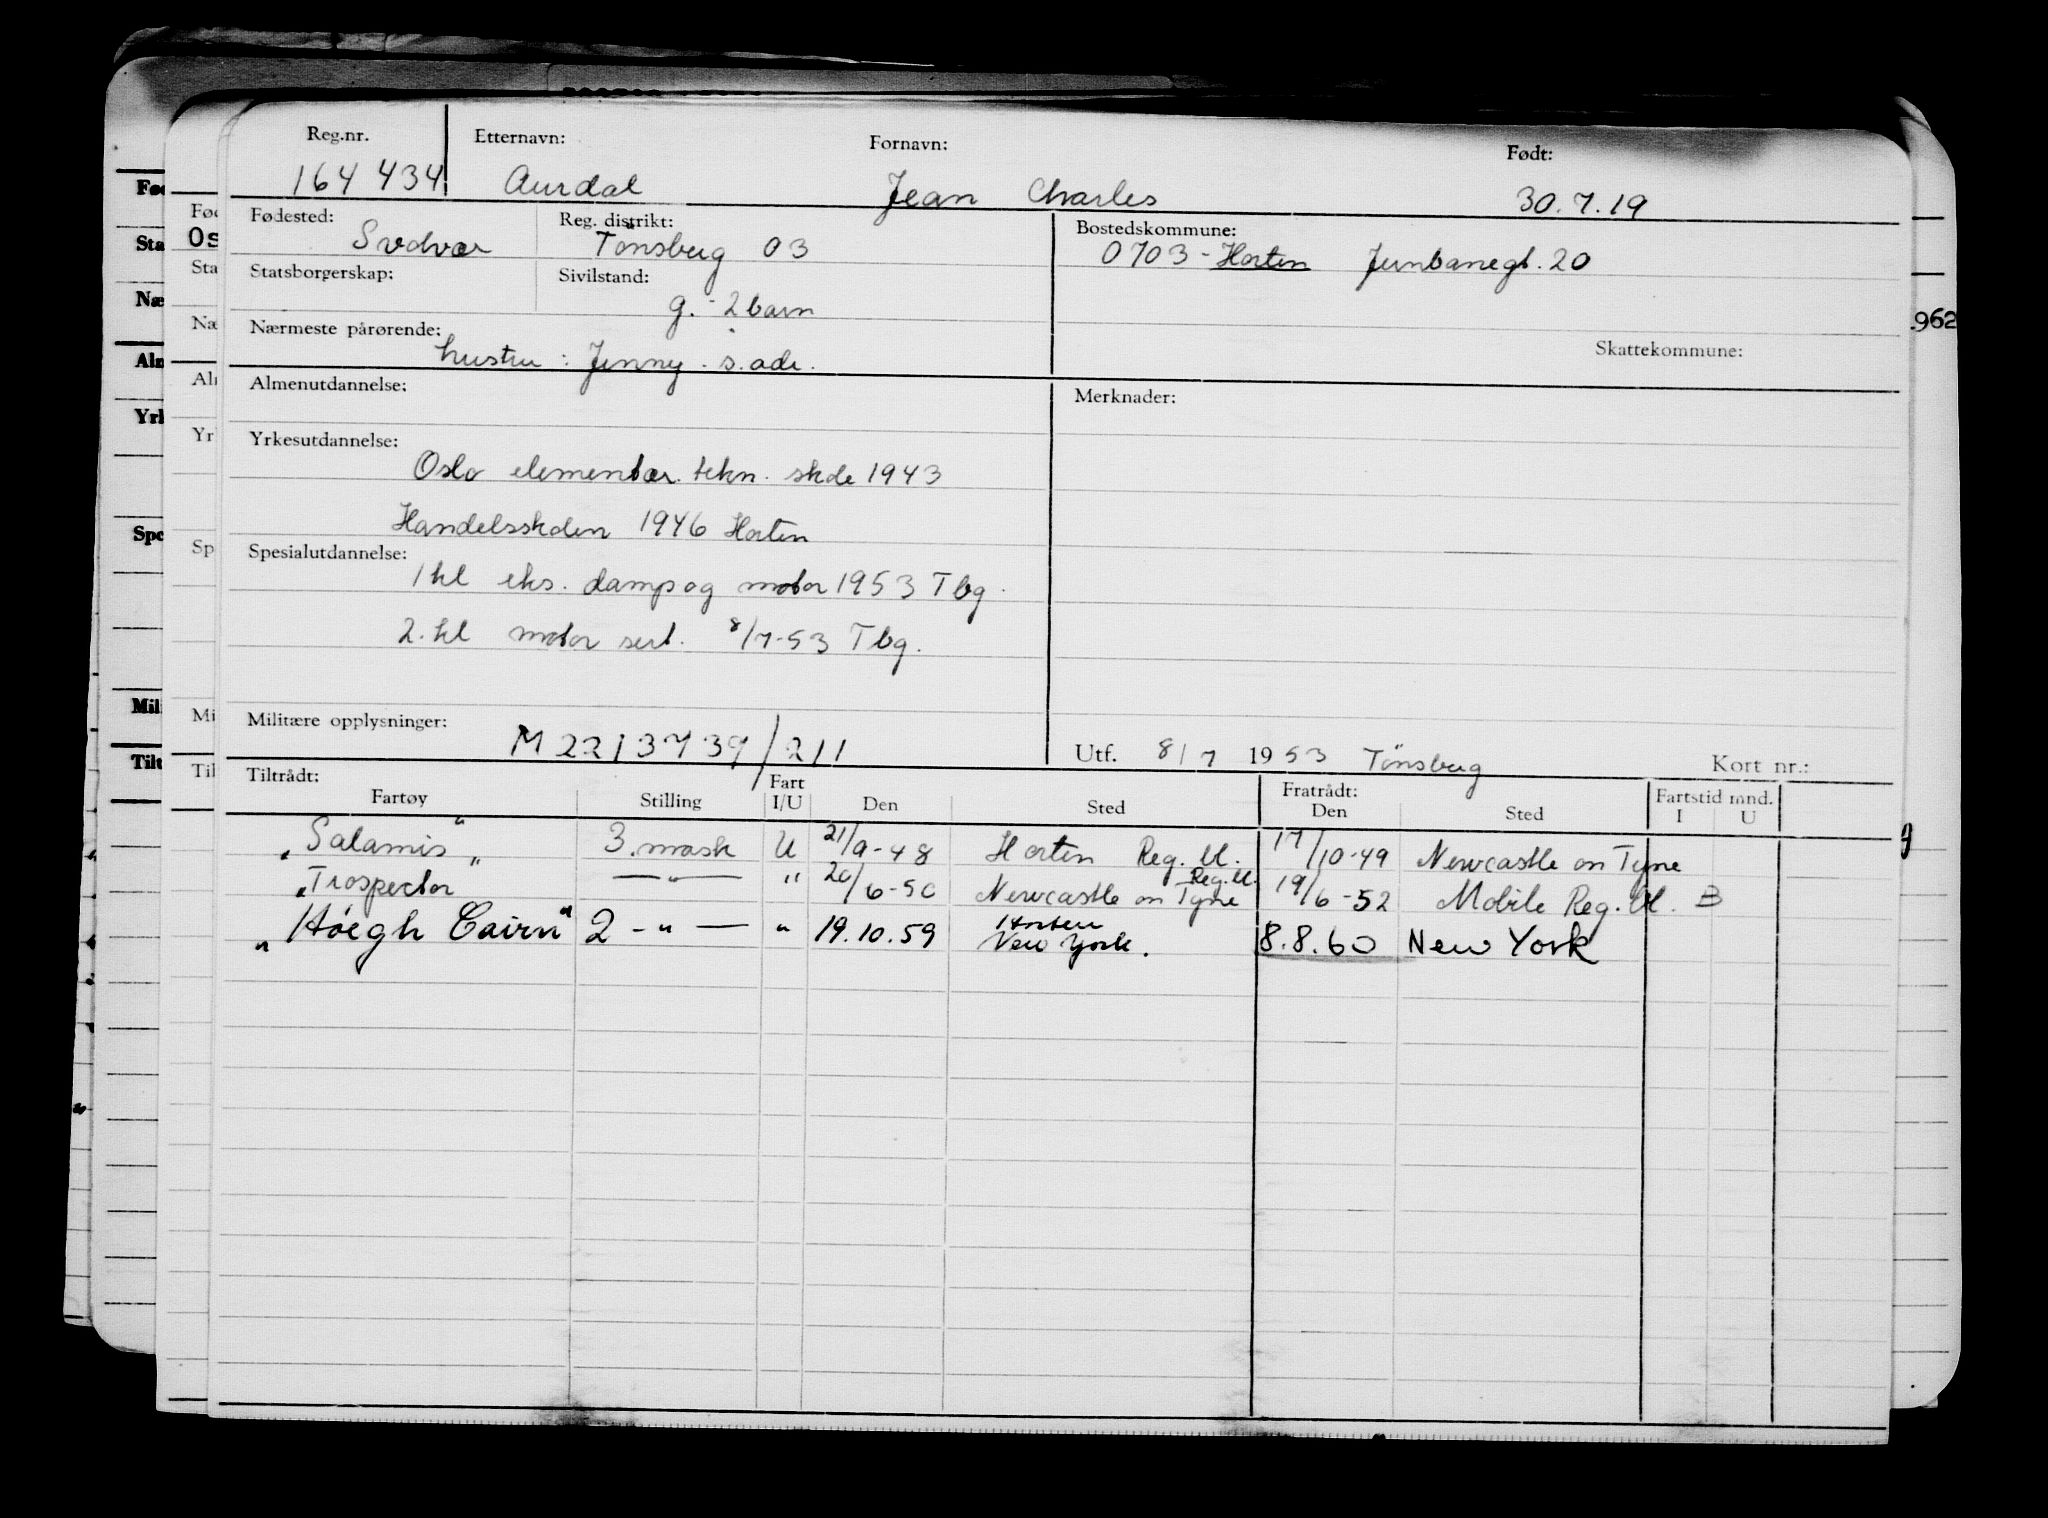 Reg.nr. Etternavn: Fornavn: Født:
164 434 Aurdal Jean Charles 30.7.19
Fødested: Reg. distrikt: Bostedskommune:
Svolvær Tönsberg 03 0703 - Horten Jernbanegt. 20
Statsborgerskap: Sivilstand:
g. - 2 barn
Nærmeste pårørende: Skattekommune:
hustru : Jenny . s. adr.
Almenutdannelse: Merknader:
Yrkesutdannelse:
Oslo elementær. tekn. skole 1943
Handelsskolen 1946 Horten
Spesialutdannelse:
1 kl eks. damp og motor 1953 Tbg.
2. kl motor sert. 8/7-53 Tbg.
Militære opplysninger:
M 2213739/211 Utf. 8/7 1953 Tönsberg Kort nr.:
Tiltrådt: Fart Fratrådt: Fartstid mnd.
Fartøy Stilling I/U Den Sted Den Sted I U
"Salamis" 3. mask U 21/9-48 Horten Reg. U. 17/10-49 Newcastle on Tyne
"Trospector — " — " 20/6-50 Newcastle on Tyne Reg. U. 19/6-52 Mobile Reg. U. B
"Höegh Cairn" 2 - " — " 19.10.59 Horten New York. 8.8.60 New York
Fød
Os
Sta
Næ
Alm
Yrk
Sp
Mil
Tilt
962